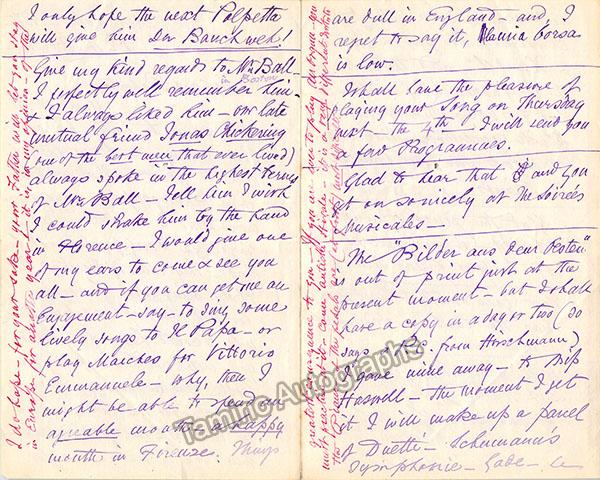 I only hope the next Polpetta
will give him Der Bauchweh!
Give my kind regards to Mr Ball -
in Boston
I perfectly well remember him -
& I always liked him - our late
mutual friend Jonas Chickering
(one of the best men that ever lived)
always spoke in the highest terms
of Mr Ball - Tell him I wish
I could shake him by the hand
in Florence - I would give one
of my ears to come & see you
all - and if you can get me an
Engagement - say - to sing some
lively songs to Il Papa - or
play Marches for Vittorio
Emmanuele - why, then I
might be able to spend an
agreable month - a happy
month in Firenze. Things
I do hope - for your sake - your Father will let you stay
in Europe for another year - it is in my opinion of the
greatest importance to you - If you are
are dull in England - and, I
regret to say it, Maria Corsa
is low.
I shall have the pleasure of
playing your Song on Thursday
next - the 4th - I will send you
a few Programmes.
Glad to hear that and you
get on so nicely at the Soirées
Musicales -
The "Bilder aus dem Osten"
is out of print just at the
present moment - but I shall
have a copy in a day or two (so
says Pic from Hirschmann)
I gave mine away - to Miss
Haswell - the moment I get
it I will make up a parcel
of Duetti - Schumann's
Symphonie - Gade - &c
Tamino Autographs